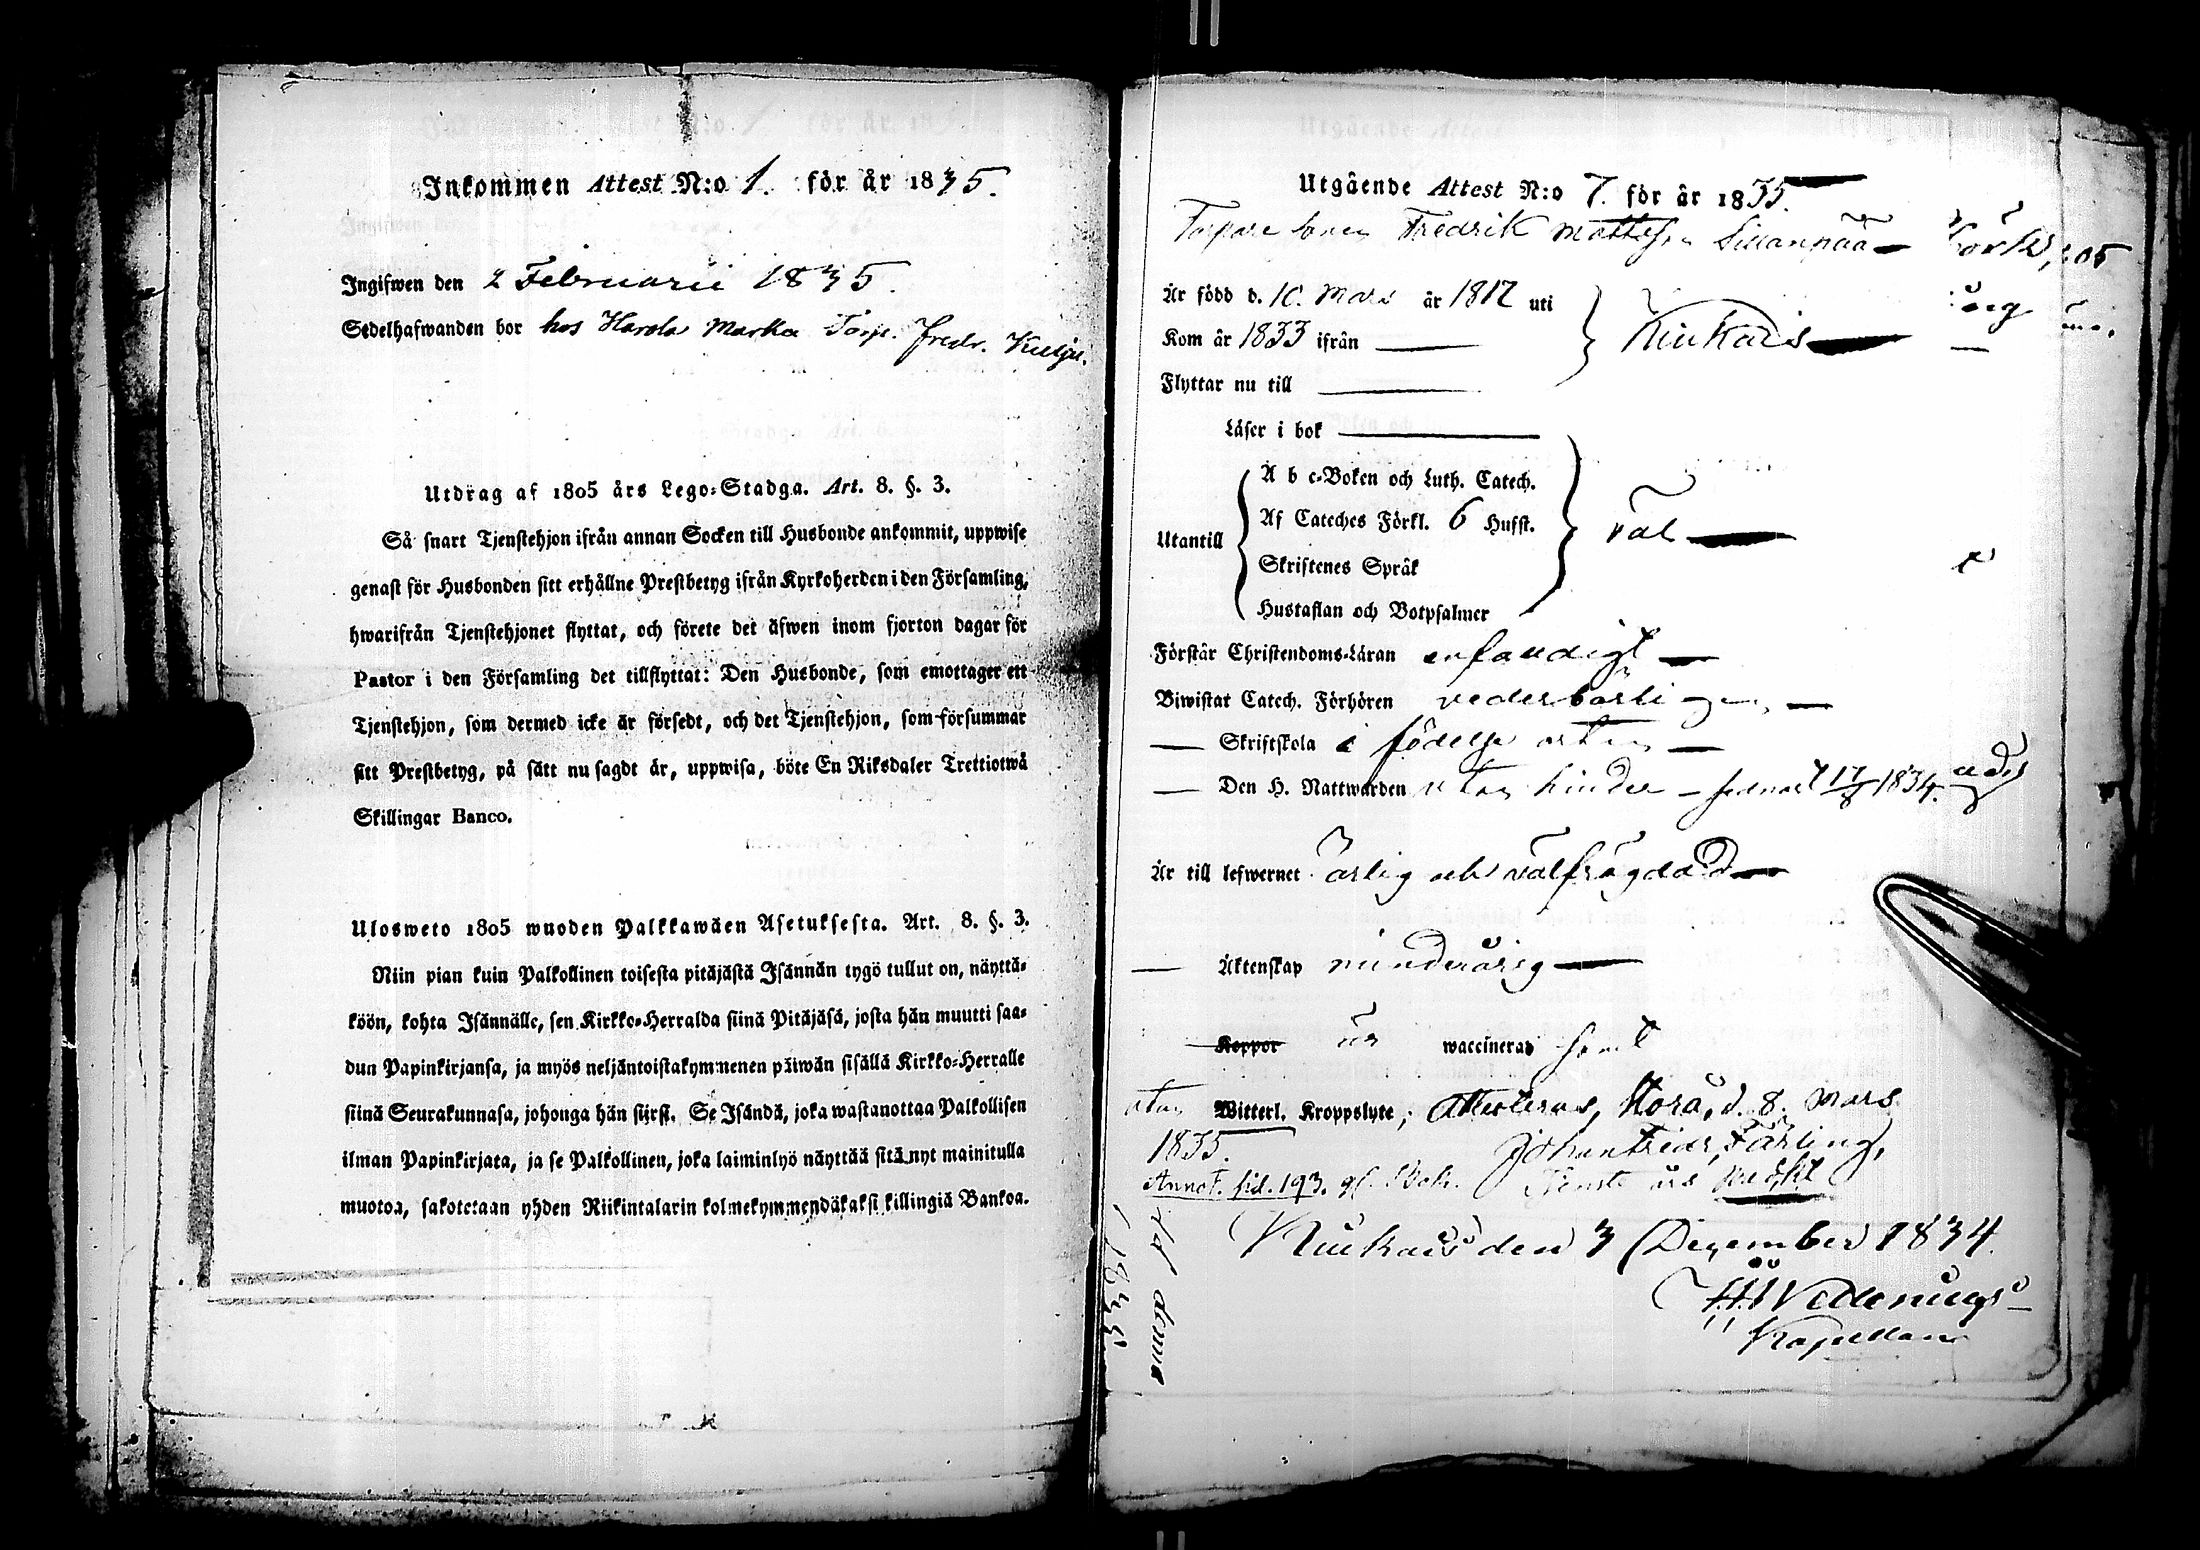 Inkommen Attest N:o 1. för år 1835.
Ingifwen den 2 Februarii 1835.
Sedelhafwanden bor hos Harola Marka Torp. Fredr.
Utdrag af 1805 års Lego-Stadga. Art. 8. §. 3.
Så snart Tjenstehjon ifrån annan Socken till Husbonde ankommit, uppwise
genast för Husbonden sitt erhållne Prestbetyg ifrån Kyrkoherden i den Församling,
hwarifrån Tjenstehjonet flyttat, och förete det äfwen inom fjorton dagar för
Pastor i den Församling det tillflyttat: Den Husbonde, som emottager ett
Tjenstehjon, som dermed icke är försedt, och det Tjenstehjon, som försummar
sitt Prestbetyg, på sätt nu sagdt är, uppwisa, böte En Riksdaler Trettiotwå
Skillingar Banco.
Ulosweto 1805 wuoden Palkkawäen Asetuksesta. Art. 8. §. 3.
Niin pian kuin Palkollinen toisesta pitäjästä Isännän tygö tullut on, näyttä-
köön, kohta Isännälle, sen Kirkko-Herralda siinä Pitäjäsä, josta hän muutti saa-
dun Papinkirjansa, ja myös neljäntoistakymmenen päiwän sisällä Kirkko-Herralle
siinä Seurakunnasa, johonga hän siirsi. Se Isändä, joka wastanottaa Palkollisen
ilman Papinkirjata, ja se Palkollinen, joka laiminlyö näyttää sitä nyt mainitulla
muotoa, sakotetaan yhden Riikintalarin kolmekymmendäkaksi killingiä Bankoa.
Utgående Attest N:o 7. för år 1835.
Torpare sonen Fredrik Mattsson Sillanpää
Är född d. 10. Mars år 1812 uti
Kom år 1833 ifrån
Kiukais
Flyttar nu till
Läser i bok
A b c-Boken och Luth. Catech.
Af Cateches Förkl. 6 Hufst.
Utantill
väl
Skriftenes Språk
Hustaflan och Botpsalmer
Förstår Christendoms-Läran enfaldigt
Biwistat Catech. Förhören vederbörligen,
— Skriftskola i födelse orten
— Den H. Nattwarden utan hinder - sednast 17/8 1834.
Är till lefwernet ärlig och välfrägdad
— Äktenskap minderårig
Koppor är waccinerad samt
utan Witterl. Kroppslyte; Attesteras, Nora, d. 8. Mars
1835. Johan Fredr. Färling,
Annot. sid. 193. gl. Bok.
Kiukais den 3 December 1834.
Kapellan